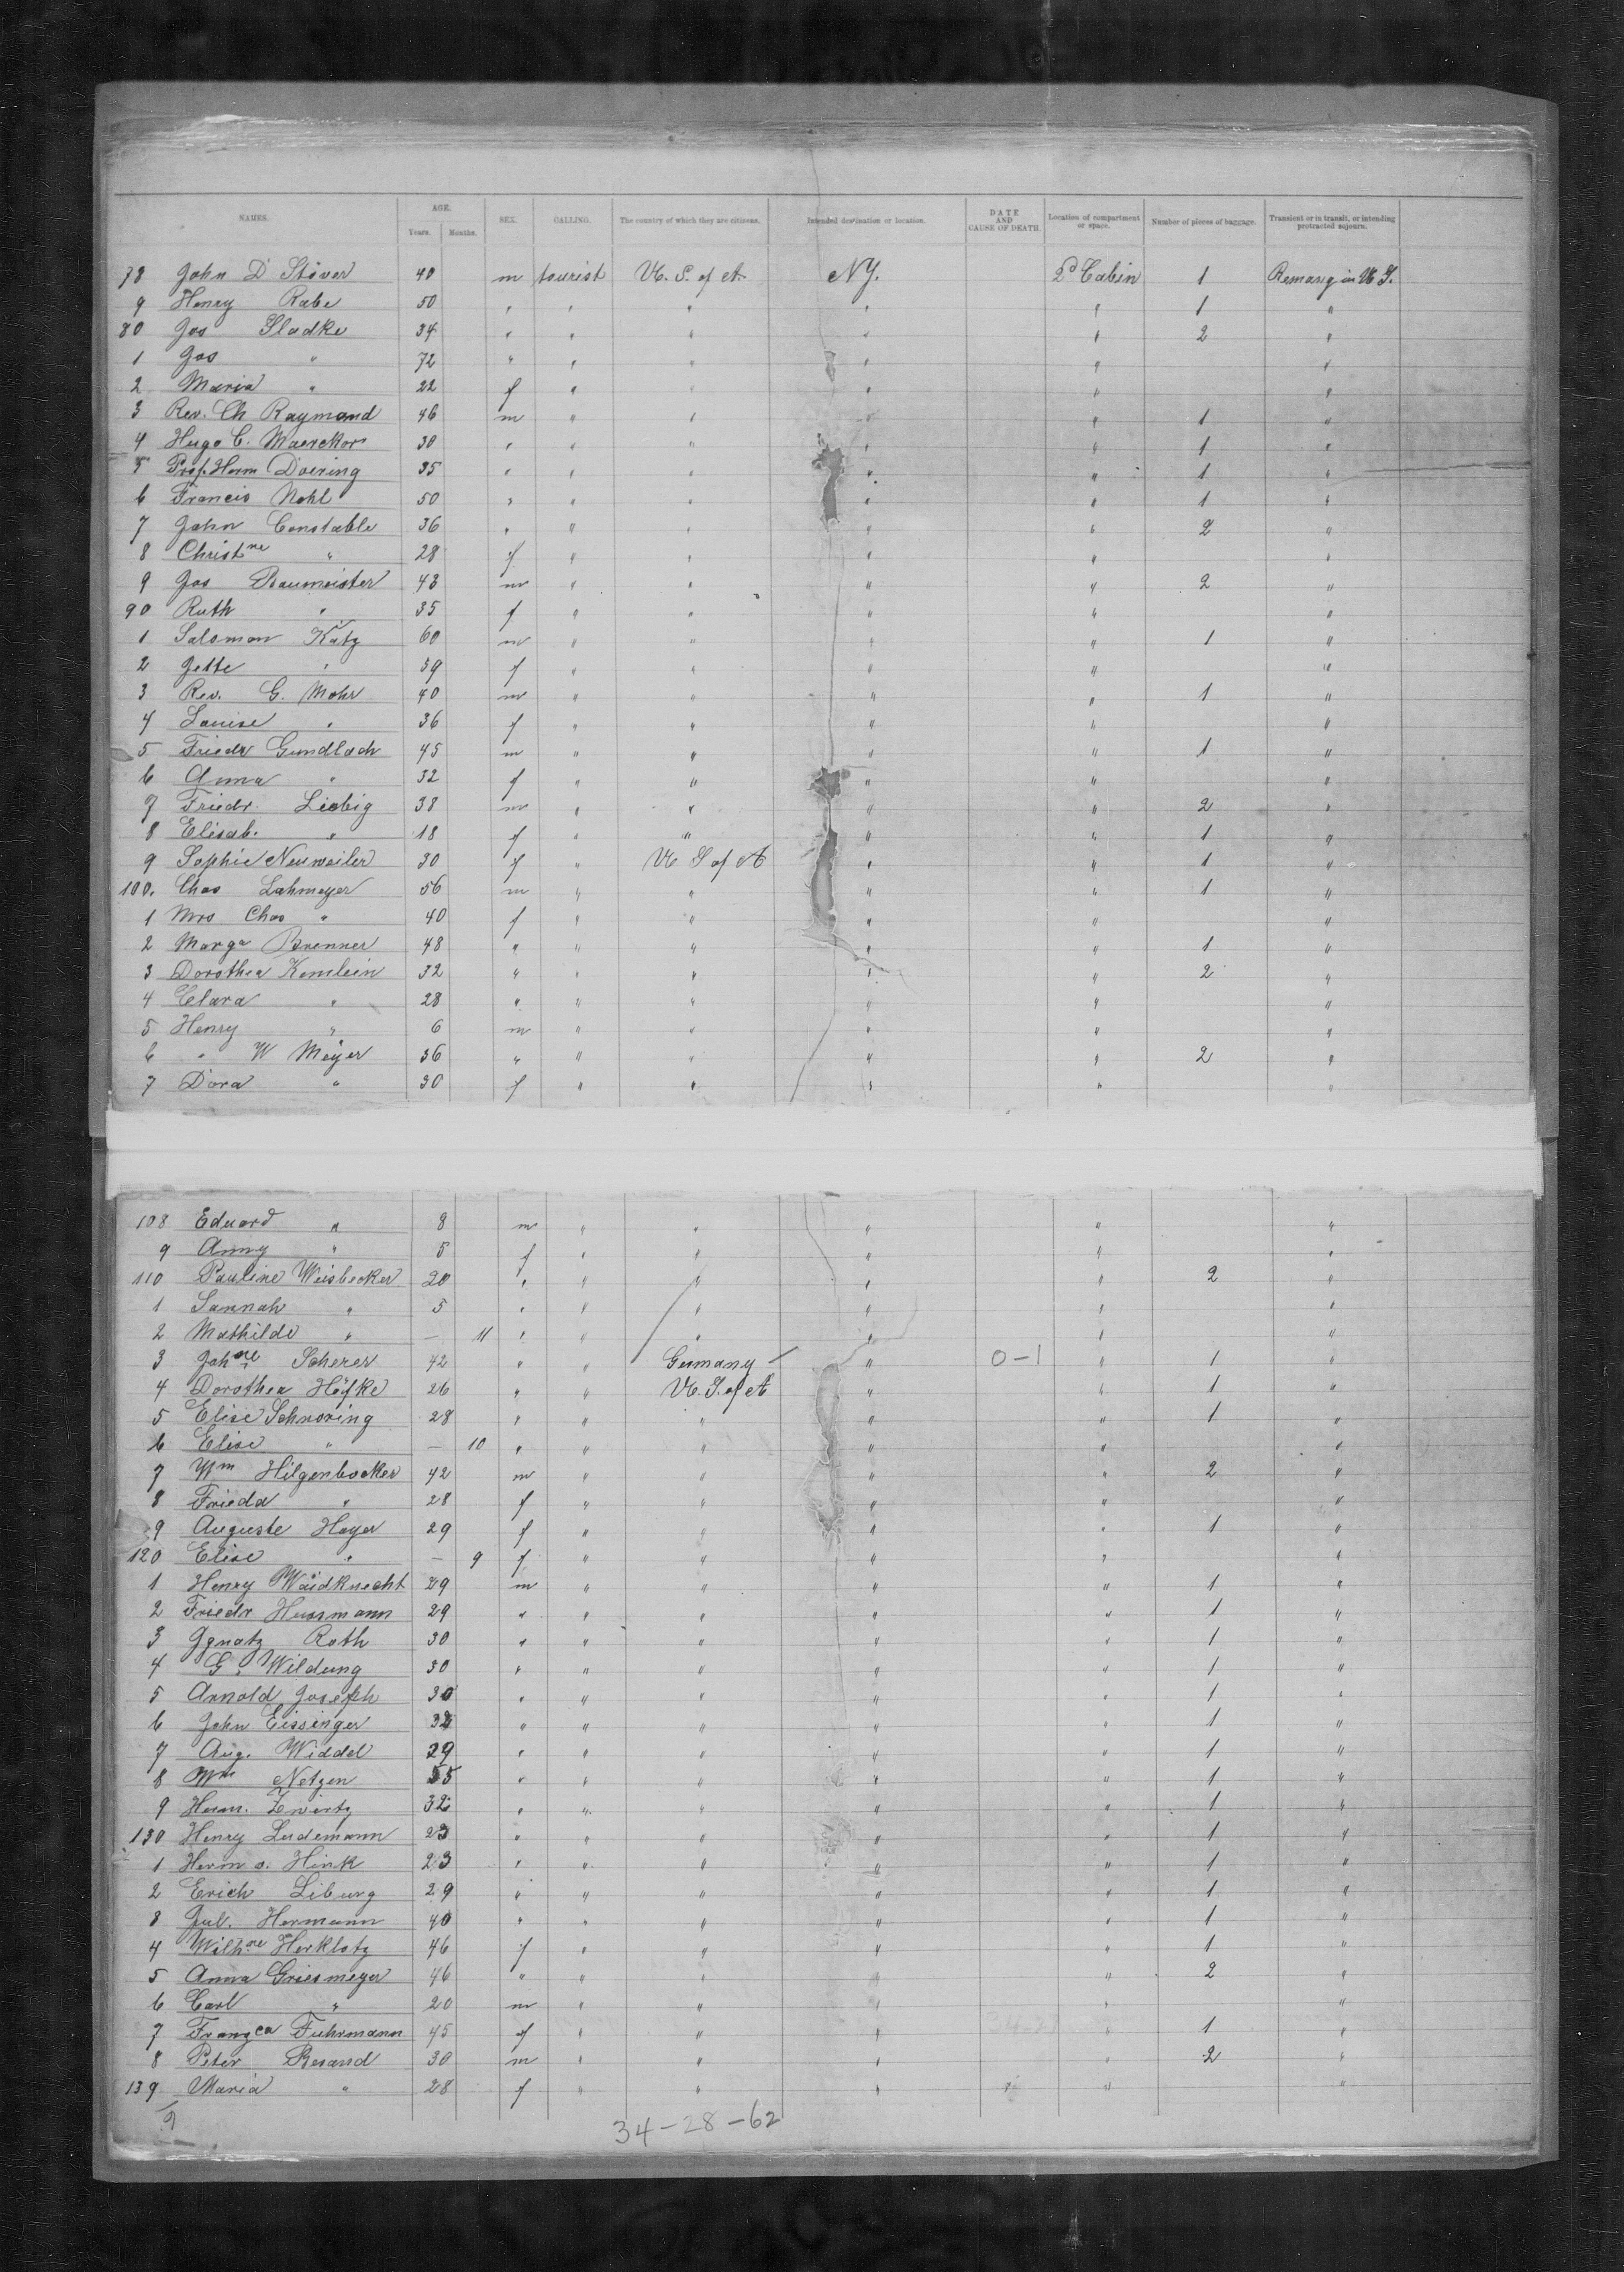 NAMES. AGE. SEX. CALLING. The country of which they are citizens. Intended destination or location. DATE AND CAUSE OF DEATH. Location of compartment or space. Number of pieces of baggage. Transient or in transit, or intending protracted sojourn.
Years. Months.
78 John D Stöver 40 m tourist U. S. of A. N.Y. 2d Cabin 1 Remang in U. S.
9 Henry Rabe 50 " " " " " 1 "
80 Jos Sladke 34 " " " " " 2 "
1 Jos " 72 " " " " " "
2 Maria " 22 f " " " " "
3 Rev. Ch Raymond 46 m " " " " 1 "
4 Hugo C. Maercker 30 " " " " " 1 "
5 Prof. Herm Doering 35 " " " " " 1 "
6 Francis Nohl 50 " " " " " 1 "
7 John Constable 36 " " " " " 2 "
8 Christne " 28 f " " " " "
9 Jos Baumeister 43 m " " " " 2 "
90 Ruth " 35 f " " " " "
1 Salomon Katz 60 m " " " " 1 "
2 Jette " 59 f " " " " "
3 Rev. G. Mohr 40 m " " " " 1 "
4 Louise " 36 f " " " " "
5 Friedr Gundlach 45 m " " " " 1 "
6 Anna " 32 f " " " " "
7 Friedr. Liebig 38 m " " " " 2 "
8 Elisab. " 18 f " " " " 1 "
9 Sophie Neuweiler 30 f " U S of A " " 1 "
100. Chas Lahmeyer 56 m " " " " 1 "
1 Mrs Chas " 40 f " " " " "
2 Marga Brenner 48 " " " " " 1 "
3 Dorothea Kemlein 32 " " " " " 2 "
4 Clara " 28 " " " " " "
5 Henry " 6 m " " " " "
6 " W Meyer 36 " " " " " 2 "
7 Dora " 30 f " " " " "
108 Eduard " 8 m " " " " "
9 Anny " 5 f " " " " "
110 Pauline Weisbecker 20 " " " " " 2 "
1 Sannah " 5 " " " " " "
2 Mathilde " — 11 " " " " " "
3 Johne Scherer 42 " " Germany " 0-1 " 1 "
4 Dorothea Höfke 26 " " U. S. of A " " 1 "
5 Elise Schnoring 28 " " " " " 1 "
6 Elise " — 10 " " " " " "
7 Wm Hilgenbocker 42 m " " " " 2 "
8 Frieda " 28 f " " " " "
9 Auguste Hoyer 29 f " " " " 1 "
120 Elise " — 9 f " " " " "
1 Henry Waidknecht 29 m " " " " 1 "
2 Friedr Husmann 29 " " " " " 1 "
3 Ignatz Roth 30 " " " " " 1 "
4 G. Wildung 30 " " " " " 1 "
5 Arnold Joseph 30 " " " " " 1 "
6 John Eissinger 32 " " " " " 1 "
7 Aug. Widdel 29 " " " " " 1 "
8 Wm Netzen 55 " " " " " 1 "
9 Herm. Zwirtz 32 " " " " " 1 "
130 Henry Ludemann 23 " " " " " 1 "
1 Herm v. Hink 23 " " " " " 1 "
2 Erich Liburg 29 " " " " " 1 "
3 Jul. Hermann 40 " " " " " 1 "
4 Wilhne Herklotz 46 f " " " " 1 "
5 Anna Griesmeyer 46 " " " " " 2 "
6 Carl " 20 m " " " " "
7 Franzca Fuhrmann 45 f " " " " 1 "
8 Peter Besand 30 m " " " " 2 "
139 Maria " 28 f " " " " "
9
34-28-62